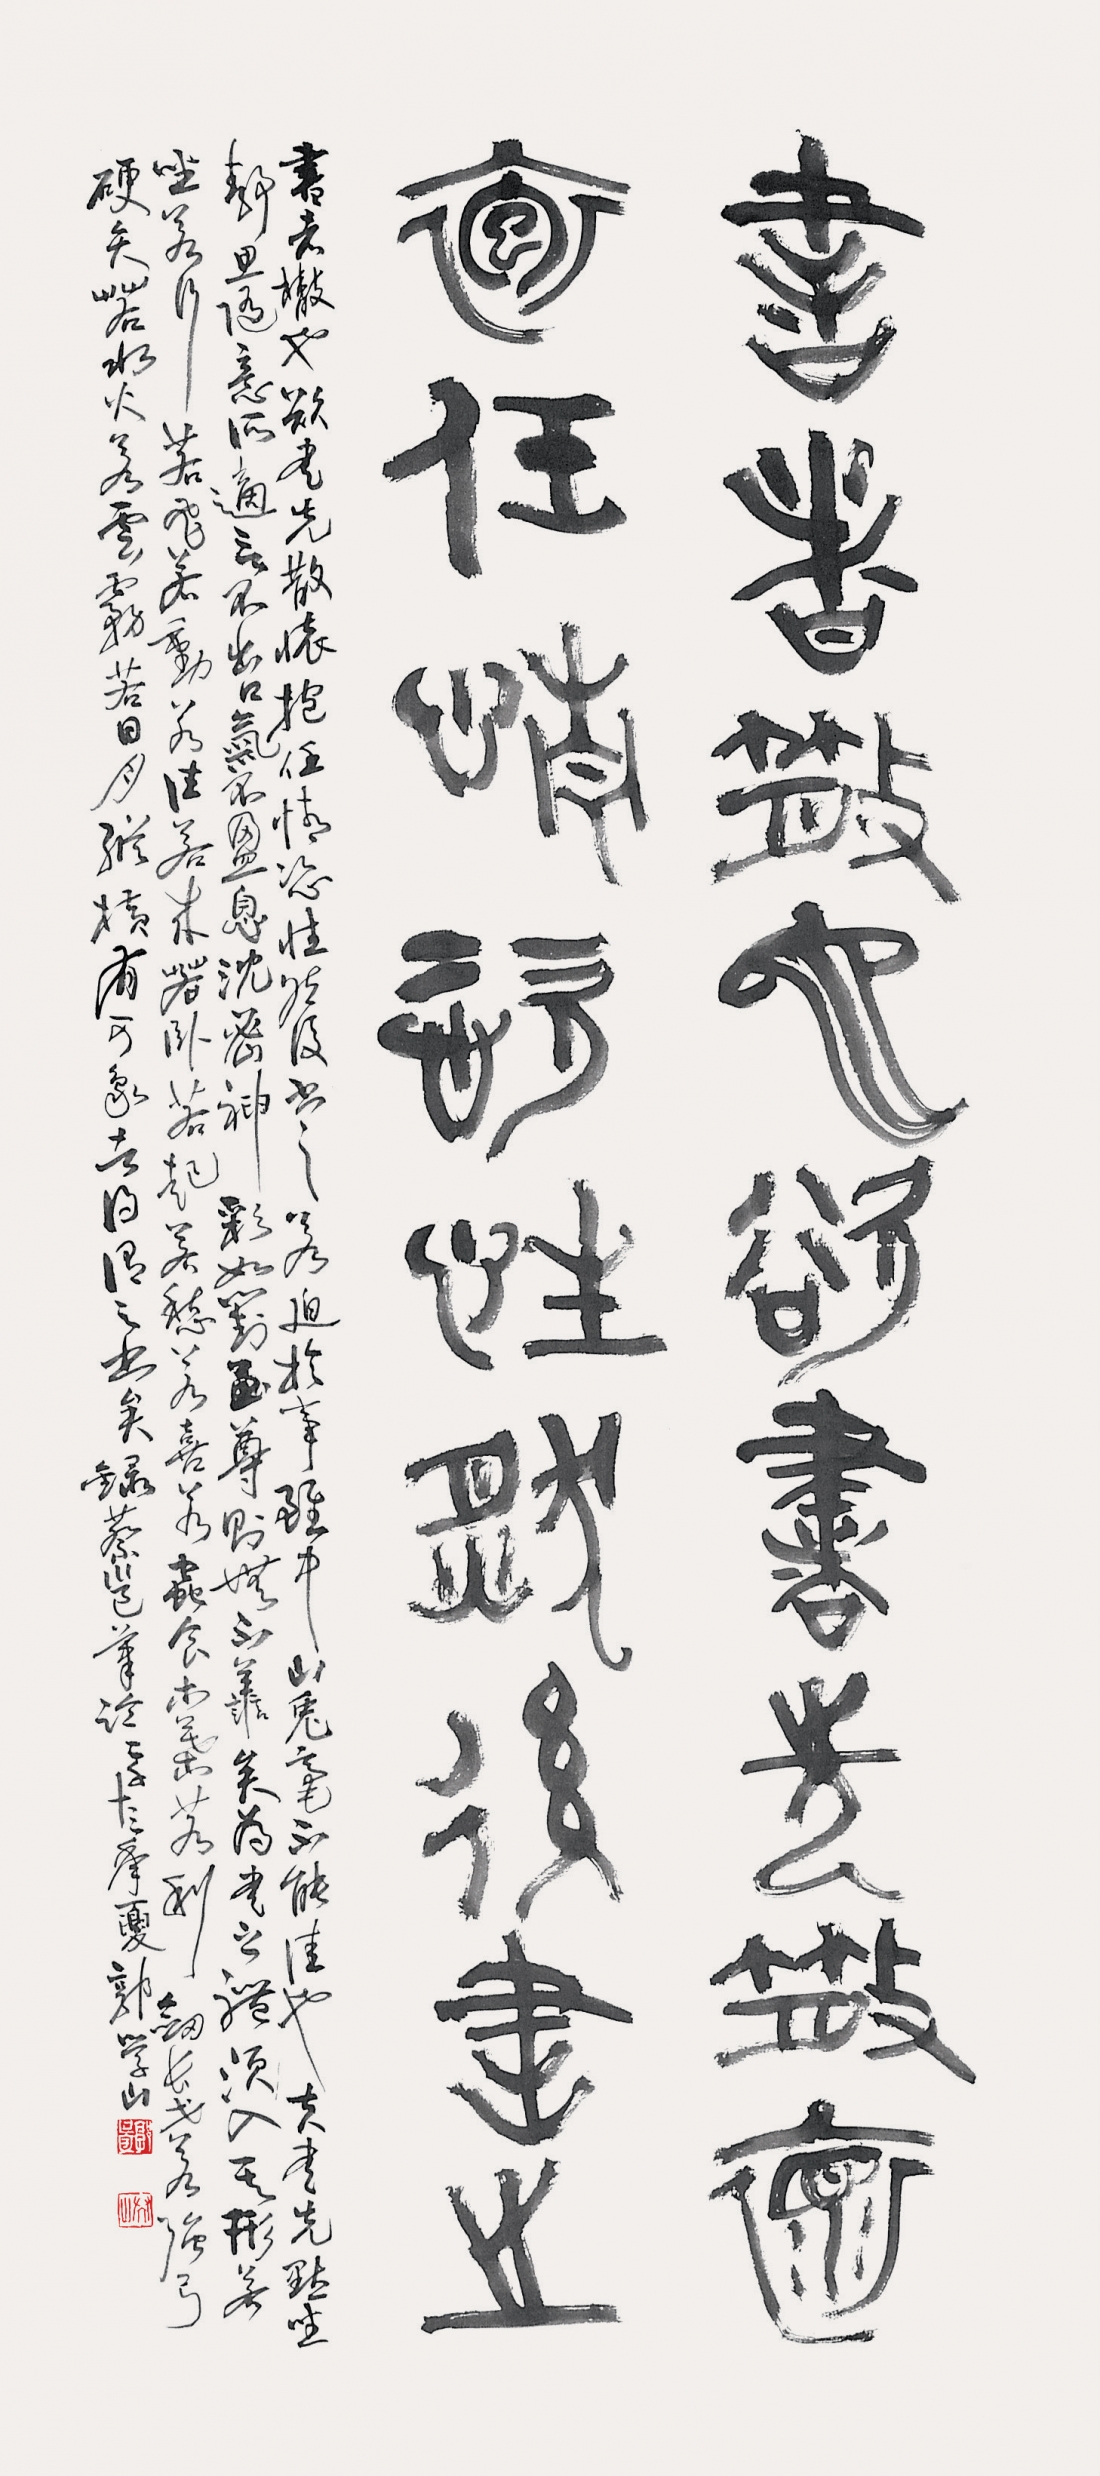 書者散也欲書先散懷
抱任情恣性然後書之
書者散也欲書先散懷抱任情恣性然後書之若迫於事雖中山兔毫不能佳也夫書先默坐
靜思隨意所適言不出口氣不盈息沈密神彩如對至尊則無不善矣為書之體須入其形若
坐若行若飛若動若往若來若臥若起若愁若喜若蟲食木葉若利劍長戈若強弓
硬矢若水火若雲霧若日月縱橫有可象者得謂之書矣錄蔡邕筆論夏郭學山